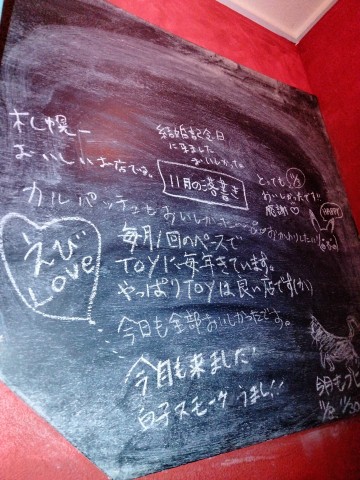 札幌一
おいしいお店である。
結婚記念日
に来ました
おいしかった。
11月の落書き
とても
おいしかったです!!
感謝♡
カルパッチョもおいしかた〜
おかわりしたい
HAPPY
えび
LOVE
毎月1回のペースで
TOYに毎年きています。
やっぱりTOYは良い店です(か)
今日も全部おいしかったです。
今月も来ました!
白子スモークうまし!!
今月も